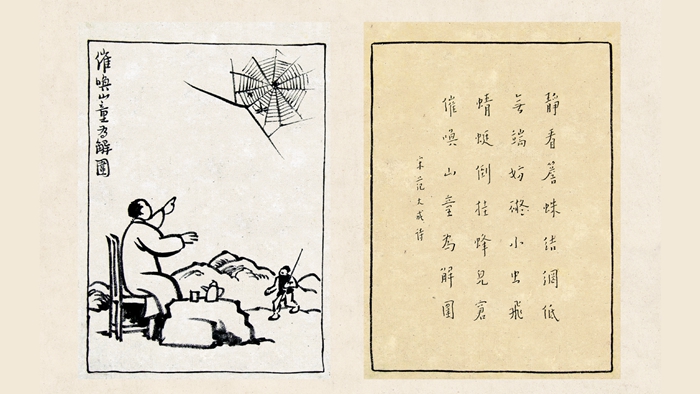 催喚山童为解圍
靜看簷蛛结網低
無端妨礙小虫飛
蜻蜓倒挂蜂兒窘
催喚山童為解圍
宋范大成詩